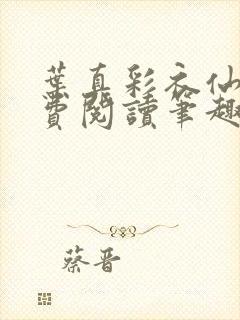 葉真彩衣仙
費閱讀筆趣
蔡晋